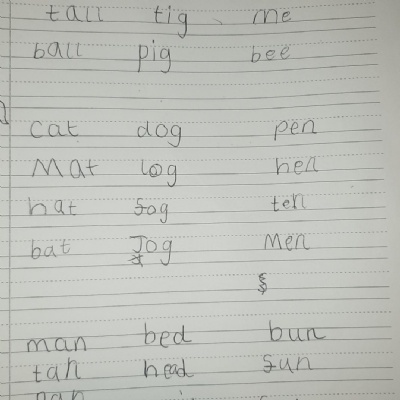 tall tig me
ball pig bee
cat dog pen
Mat log hen
hat fog ten
bat Jog Men
man bed bun
tan head sun